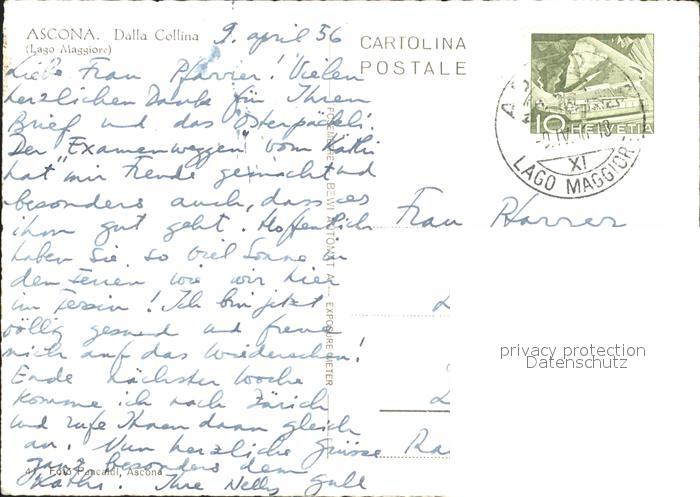 ASCONA. Dalla Collina
(Lago Maggiore)
9. april 56
CARTOLINA
POSTALE
Liebe Frau Pfarrer! Vielen
herzlichen Dank für Ihren
Brief und das Osterpäckli.
Der "Examenweggen" vom Käthi
hat mir Freude gemacht und
besonders auch, dass es
ihm gut geht. Hoffentlich
haben Sie so viel Sonne in
den Ferien wie wir hier
im Tessin! Ich bin jetzt
völlig gesund und freue
mich auf das Wiedersehen!
Ende nächster Woche
komme ich nach Zürich
und rufe Ihnen dann gleich
an. Nun herzliche Grüsse
ganz besonders dem
Käthi. Ihre Nelly Gull
Foto Pancaldi, Ascona
BEWI AUTOMAT A EXPOSURE METER
10 HELVETIA
XI
LAGO MAGGIOR
Frau Pfarrer
privacy protection
Datenschutz